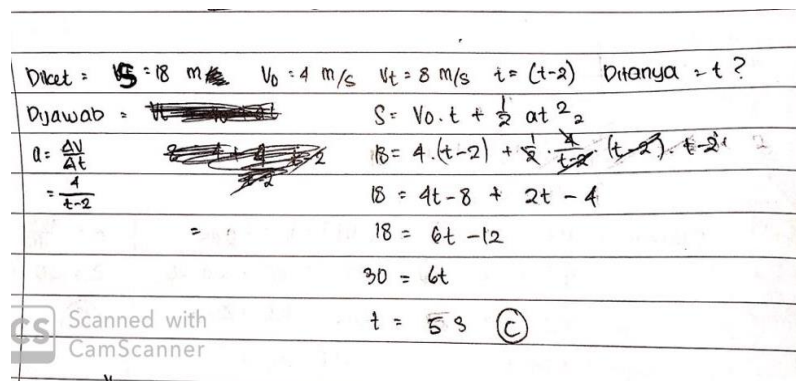 Diket = S = 18 m Vo = 4 m/s Vt = 8 m/s t = (t-2) Ditanya = t ?
Dijawab =
S = Vo.t + 1/2 at²
a = ΔV/Δt
18 = 4.(t-2) + 1/2 . 4/t-2 (t-2).t-2
= 4/t-2
18 = 4t-8 + 2t - 4
= 18 = 6t -12
30 = 6t
t = 5 s (C)
CS Scanned with
CamScanner